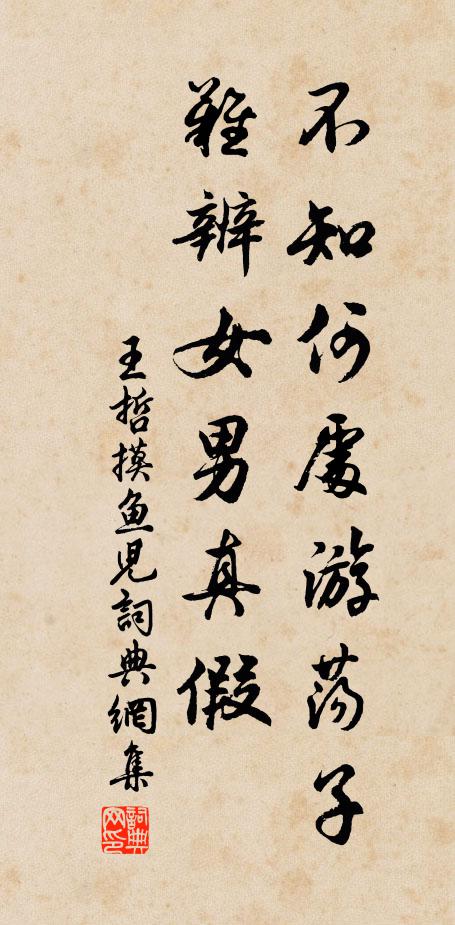 不知何處游蕩子
難辨女男真假
王哲摸鱼儿詞典網集
詞典网印